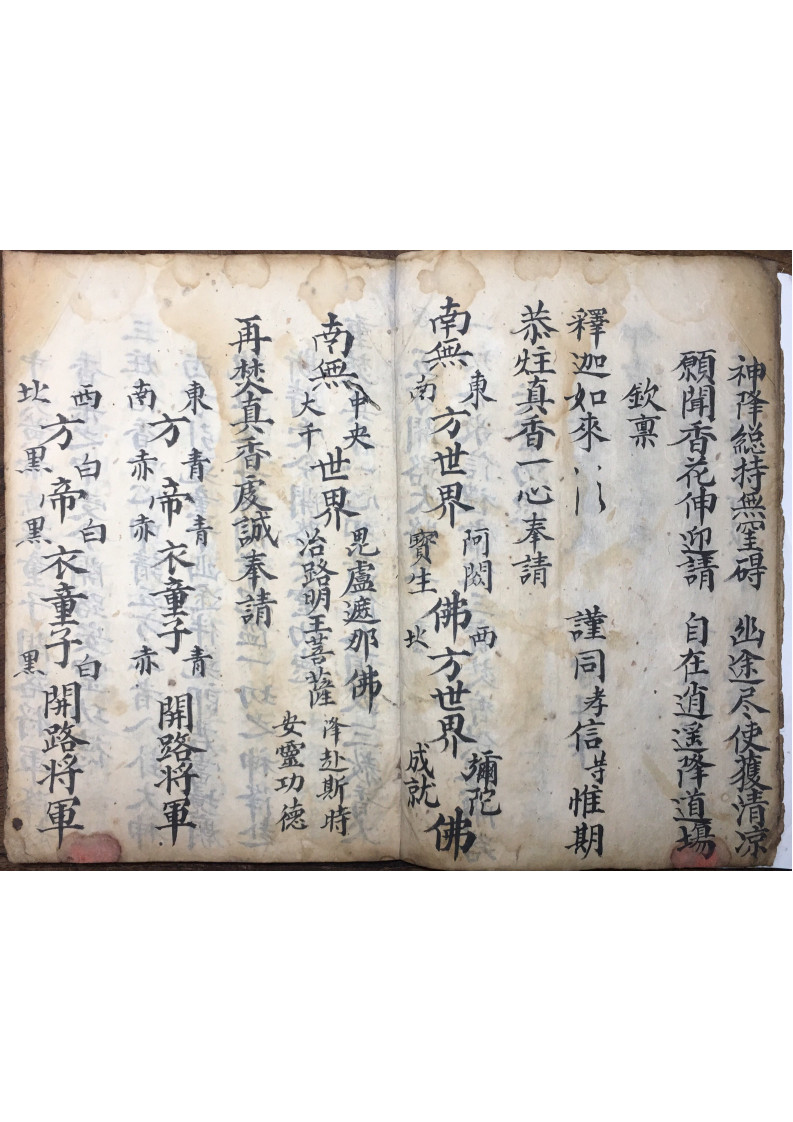 神降總持無窒碍　幽途尽使獲清凉
願聞香花伸迎請　自在逍遥降道場
欽稟
釋迦如來　謹同孝信等惟期
恭炷真香一心奉請
南無 東 南 方世界 阿閦 寶生 佛 西 北 方世界 彌陀 成就 佛
南無 中央 大千 世界 毘盧遮那佛 冶路明王菩薩 降赴斯時 安靈功德
再焚真香虔誠奉請
東 南 方 青 赤 帝 青 赤 衣童子 青 赤 開路将軍
西 北 方 白 黑 帝 白 黑 衣童子 白 黑 開路将軍